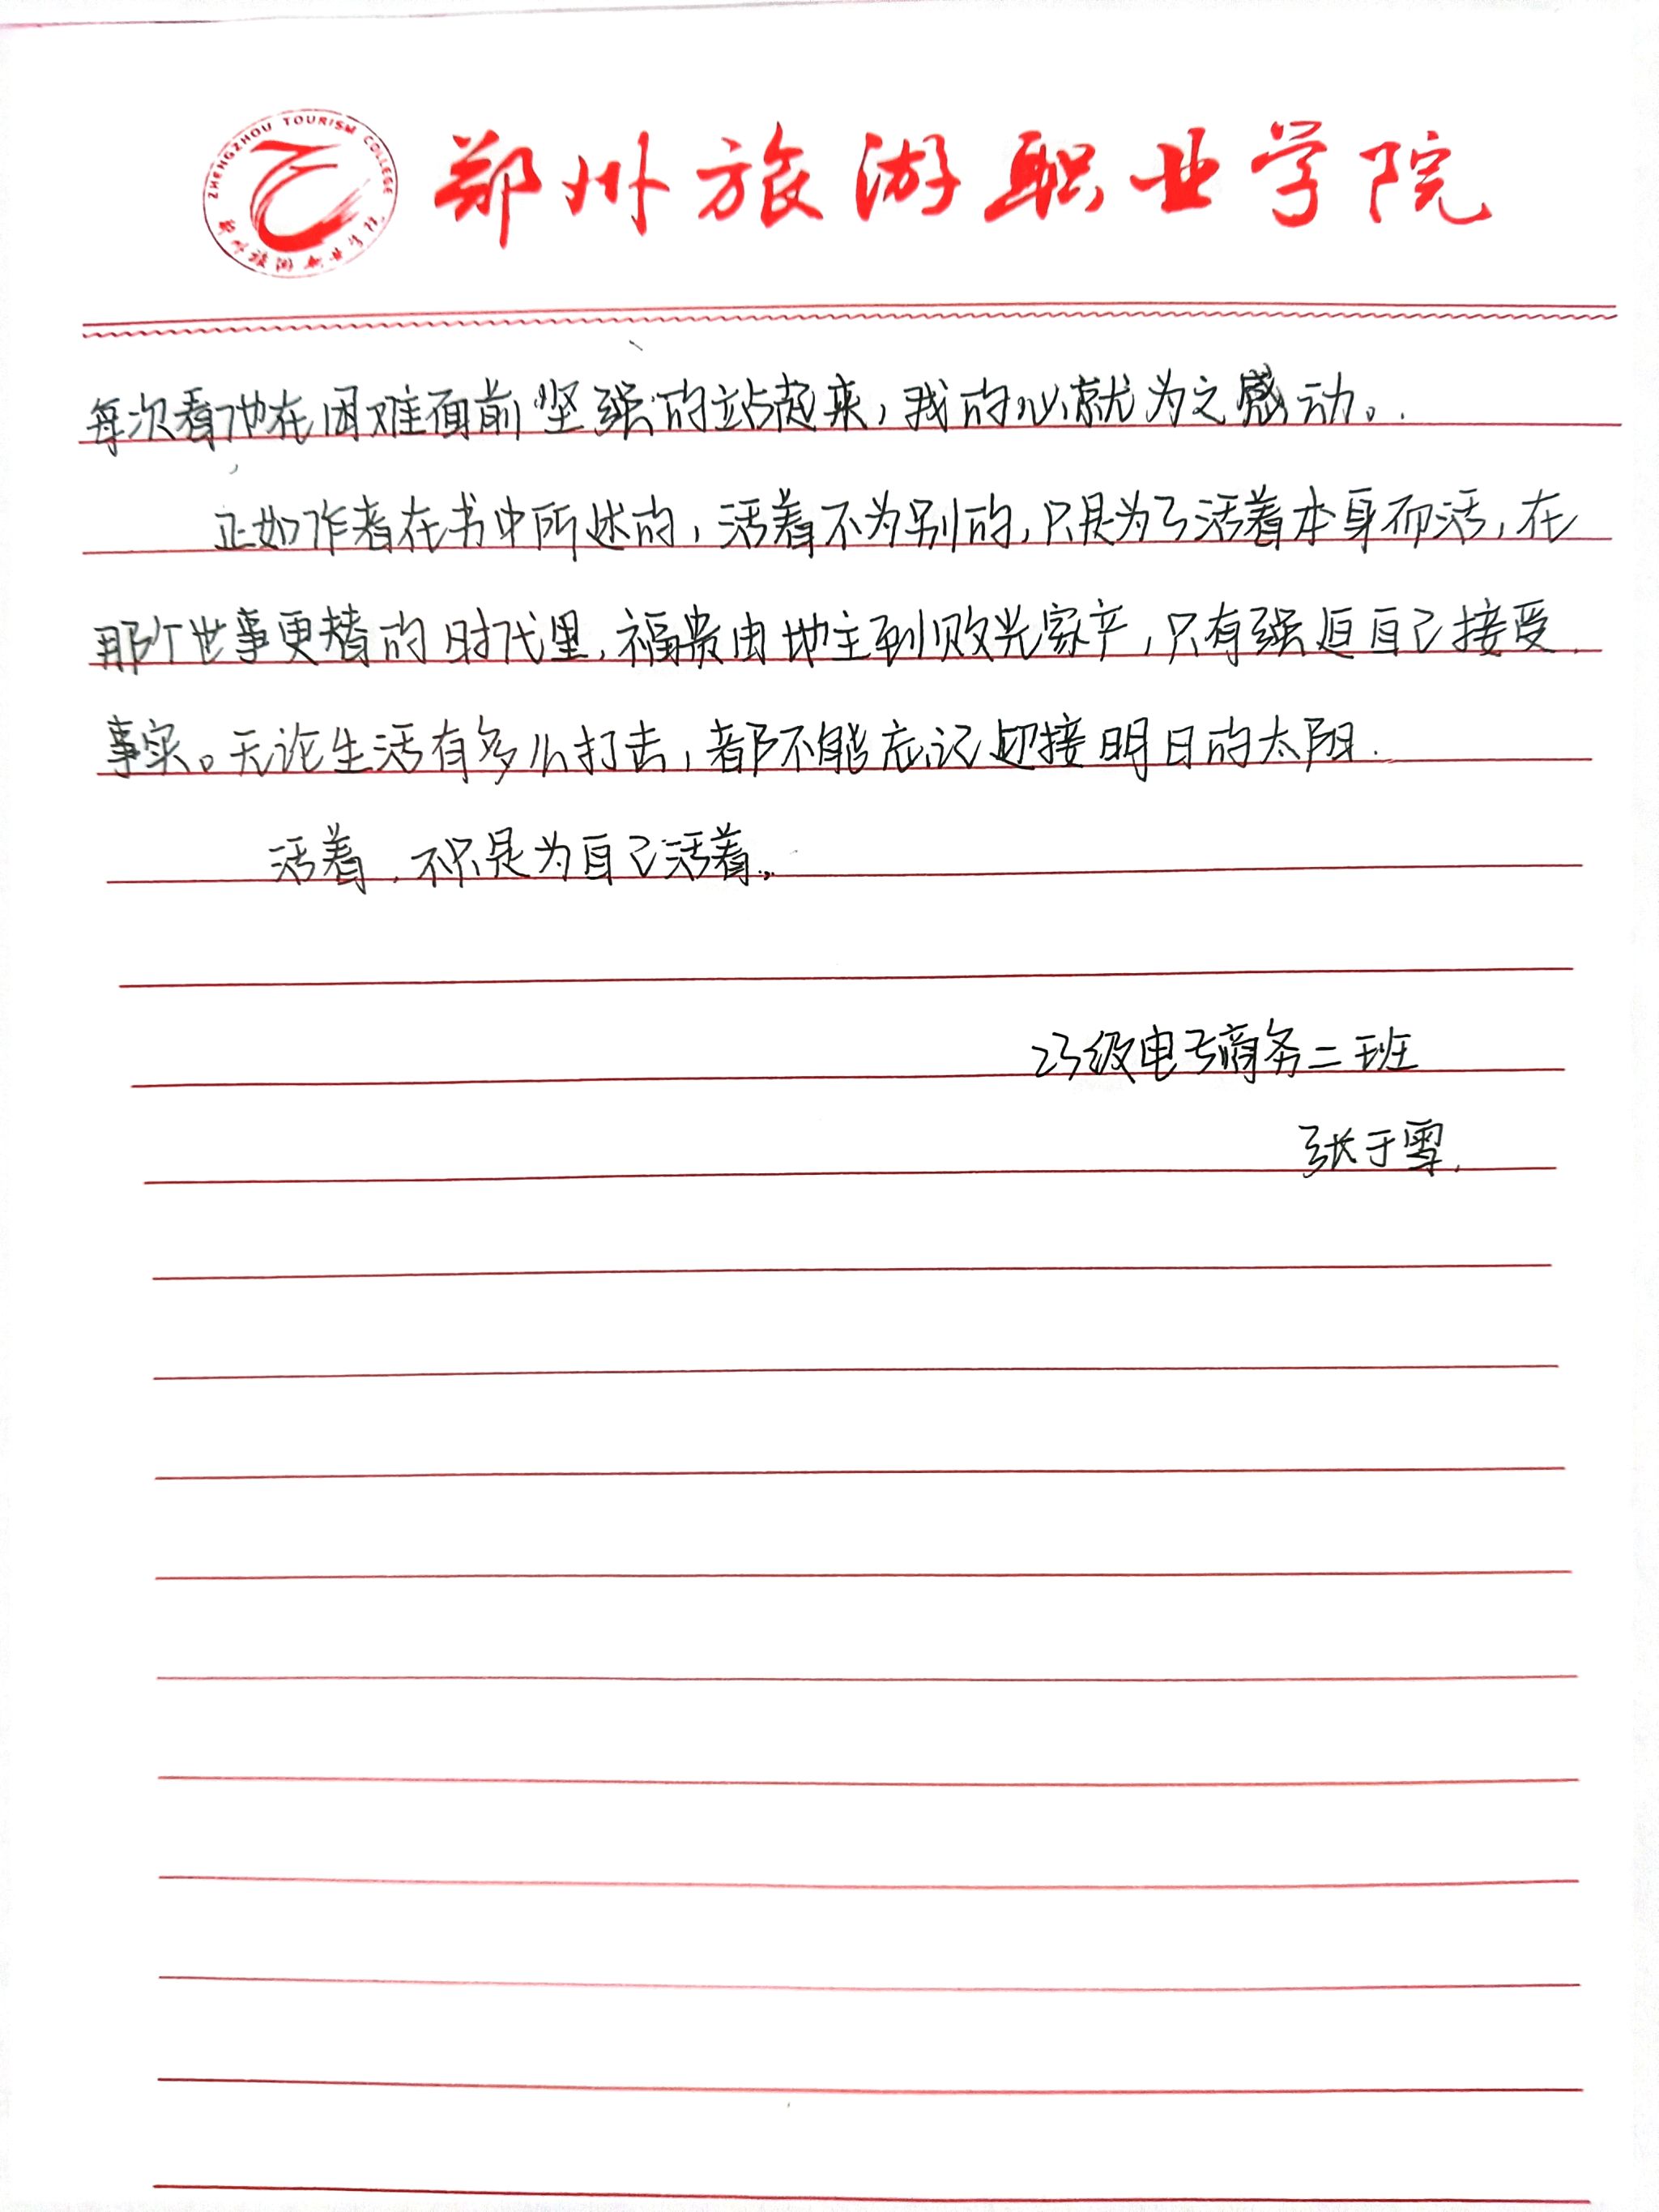 ZHENGZHOU TOURISM COLLEGE
郑州旅游职业学院
郑州旅游职业学院
每次看他在困难面前坚强的站起来，我的心就为之感动。
正如作者在书中所述的，活着不为别的，只是为了活着本身而活，在
那个世事更替的时代里，福贵由地主到败光家产，只有强迫自己接受
事实。无论生活有多么打击，都不能忘记迎接明日的太阳.
活着，不只是为自己活着。
23级电子商务二班
张于雪.